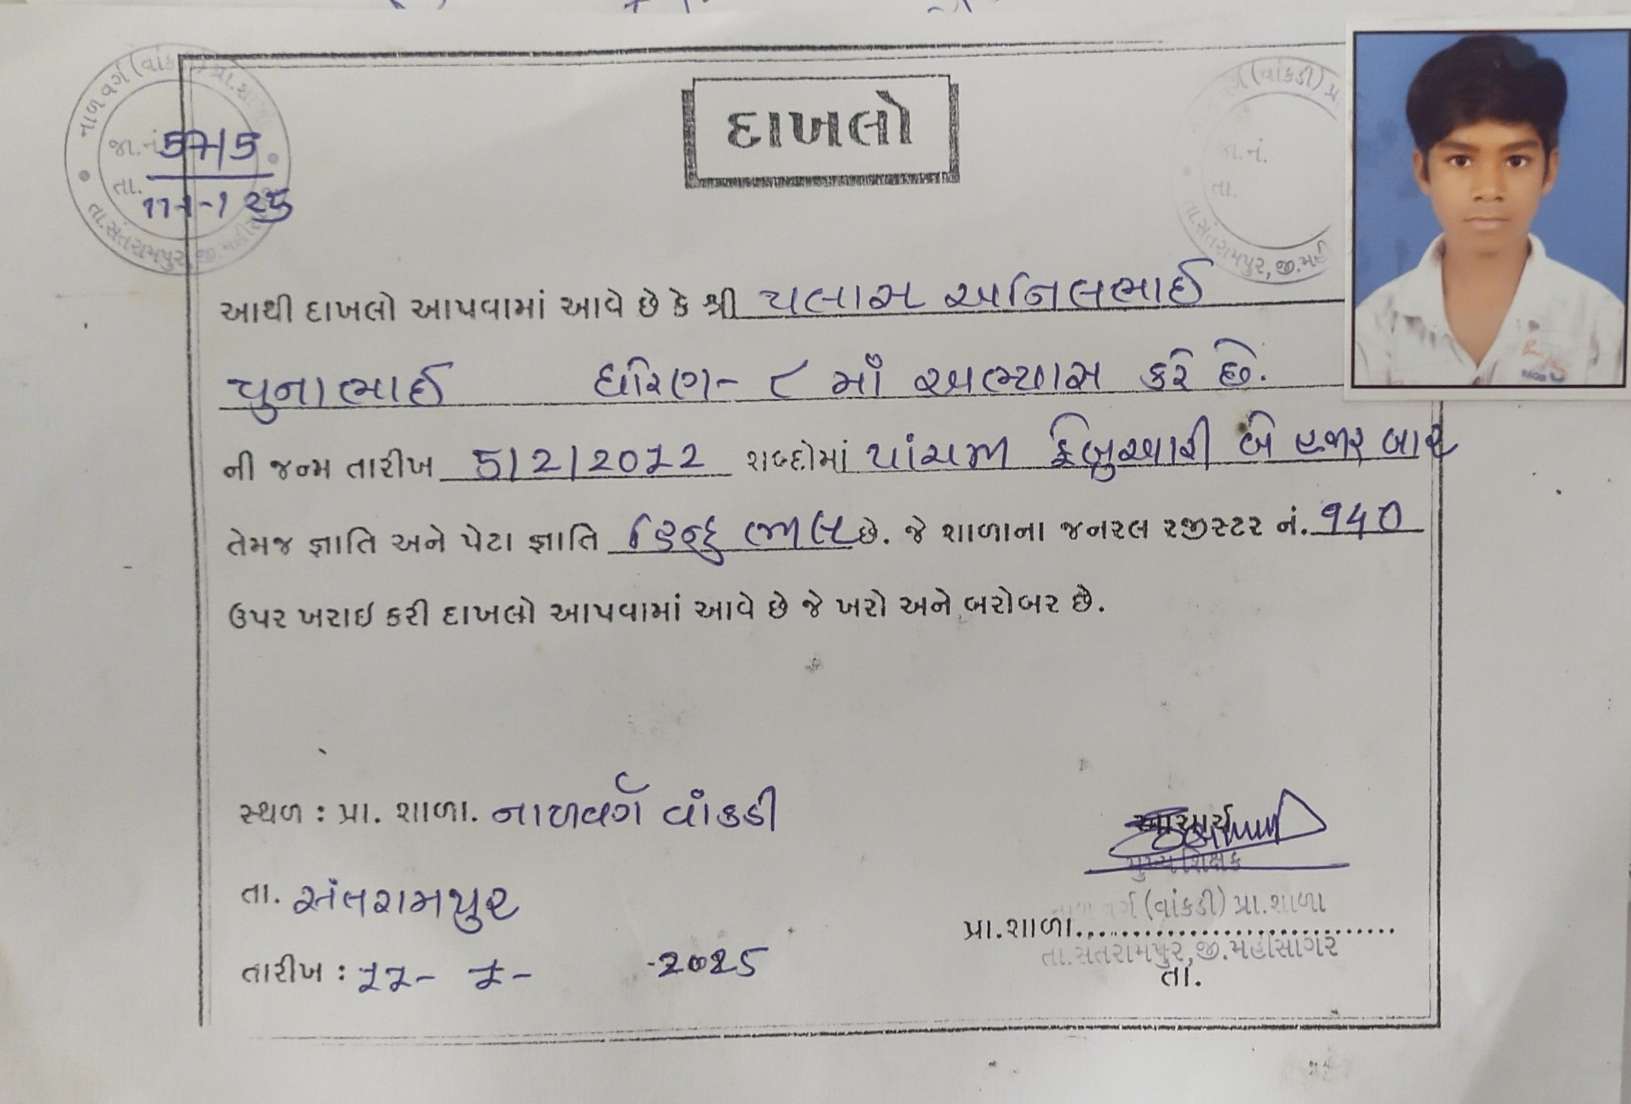 દાખલો
નાળ વર્ગ (વાંકડી) પ્રા.શાળા
જા.નં. 57/5
તા. 11-1-125
તા.સંતરામપુર, જી.મહીસાગર
(વાંકડી) પ્રા
જા.નં.
તા.
તા.સંતરામપુર, જી.મહી
આથી દાખલો આપવામાં આવે છે કે શ્રી પલાસ અનિલભાઈ
પુનાભાઈ ધોરણ- ૮ માઁ અભ્યાસ કરે છે.
ની જન્મ તારીખ 5/2/2012 શબ્દોમાં પાંચમી ફેબ્રુઆરી બે હજાર બાર
તેમજ જ્ઞાતિ અને પેટા જ્ઞાતિ હિન્દુ ભીલ છે. જે શાળાના જનરલ રજીસ્ટર નં. 940
ઉપર ખરાઇ કરી દાખલો આપવામાં આવે છે જે ખરો અને બરોબર છે.
સ્થળ : પ્રા. શાળા. નાળવર્ગ વાંકડી
તા. સંતરામપુર
તારીખ : 11- 1- -2025
આચાર્ય
મુખ્ય શિક્ષક
વર્ગ (વાંકડી) પ્રા.શાળા
પ્રા.શાળા..............................
તા.સંતરામપુર, જી.મહીસાગર
તા.